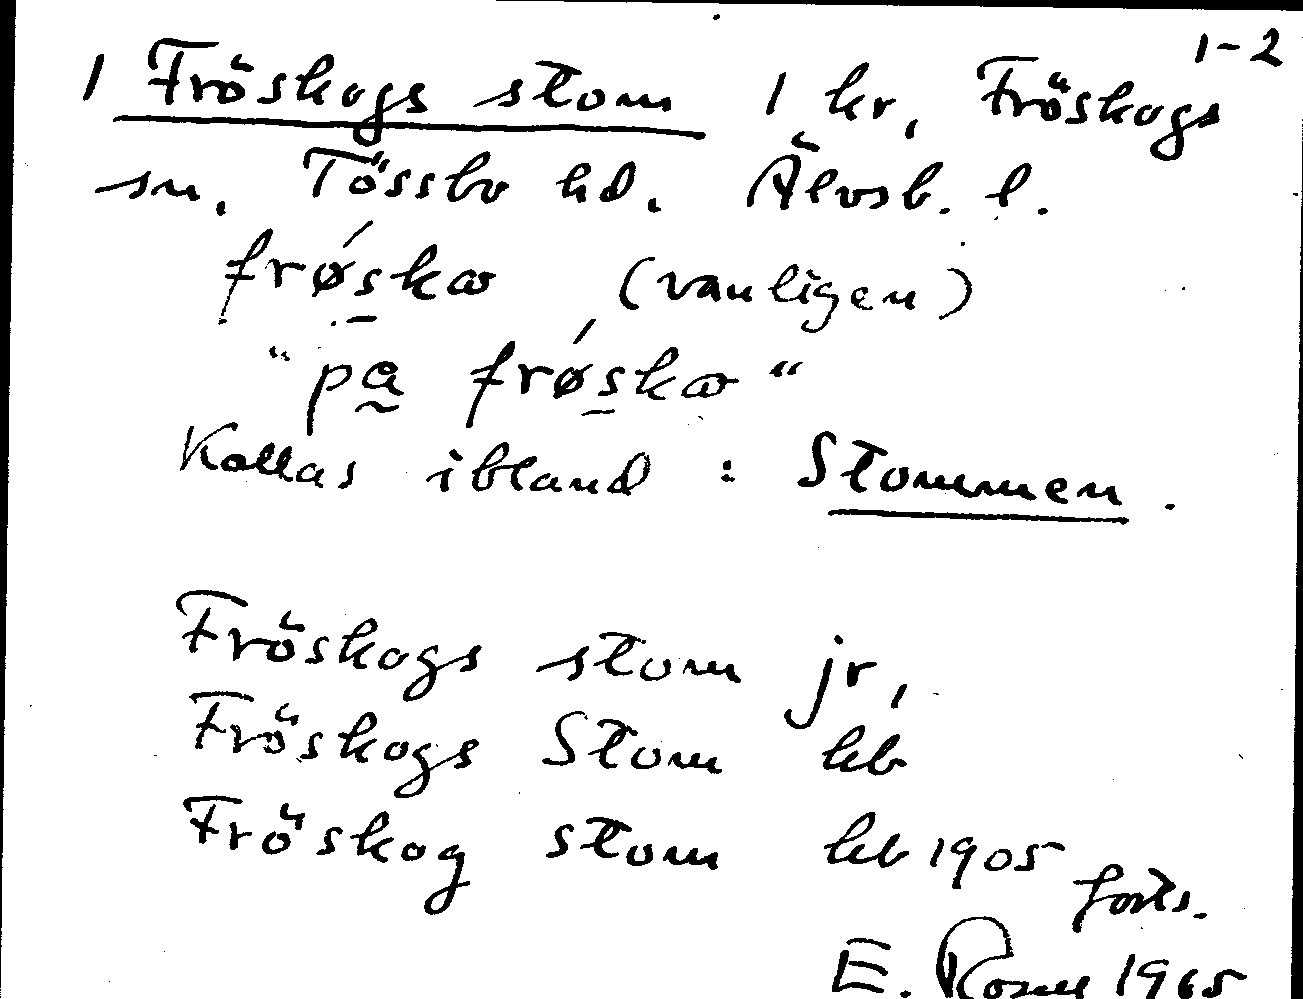 1-2
1 Fröskogs stom 1 kr, Fröskogs
sn. Tössbo hd. Älvsb. l.
frǿskæ (vanligen)
"pa frǿskæ"
Kallas ibland : Stommen.
Fröskogs stom jr,
Fröskogs Stom kb
Fröskog stom kb 1905
forts.
E. 1965